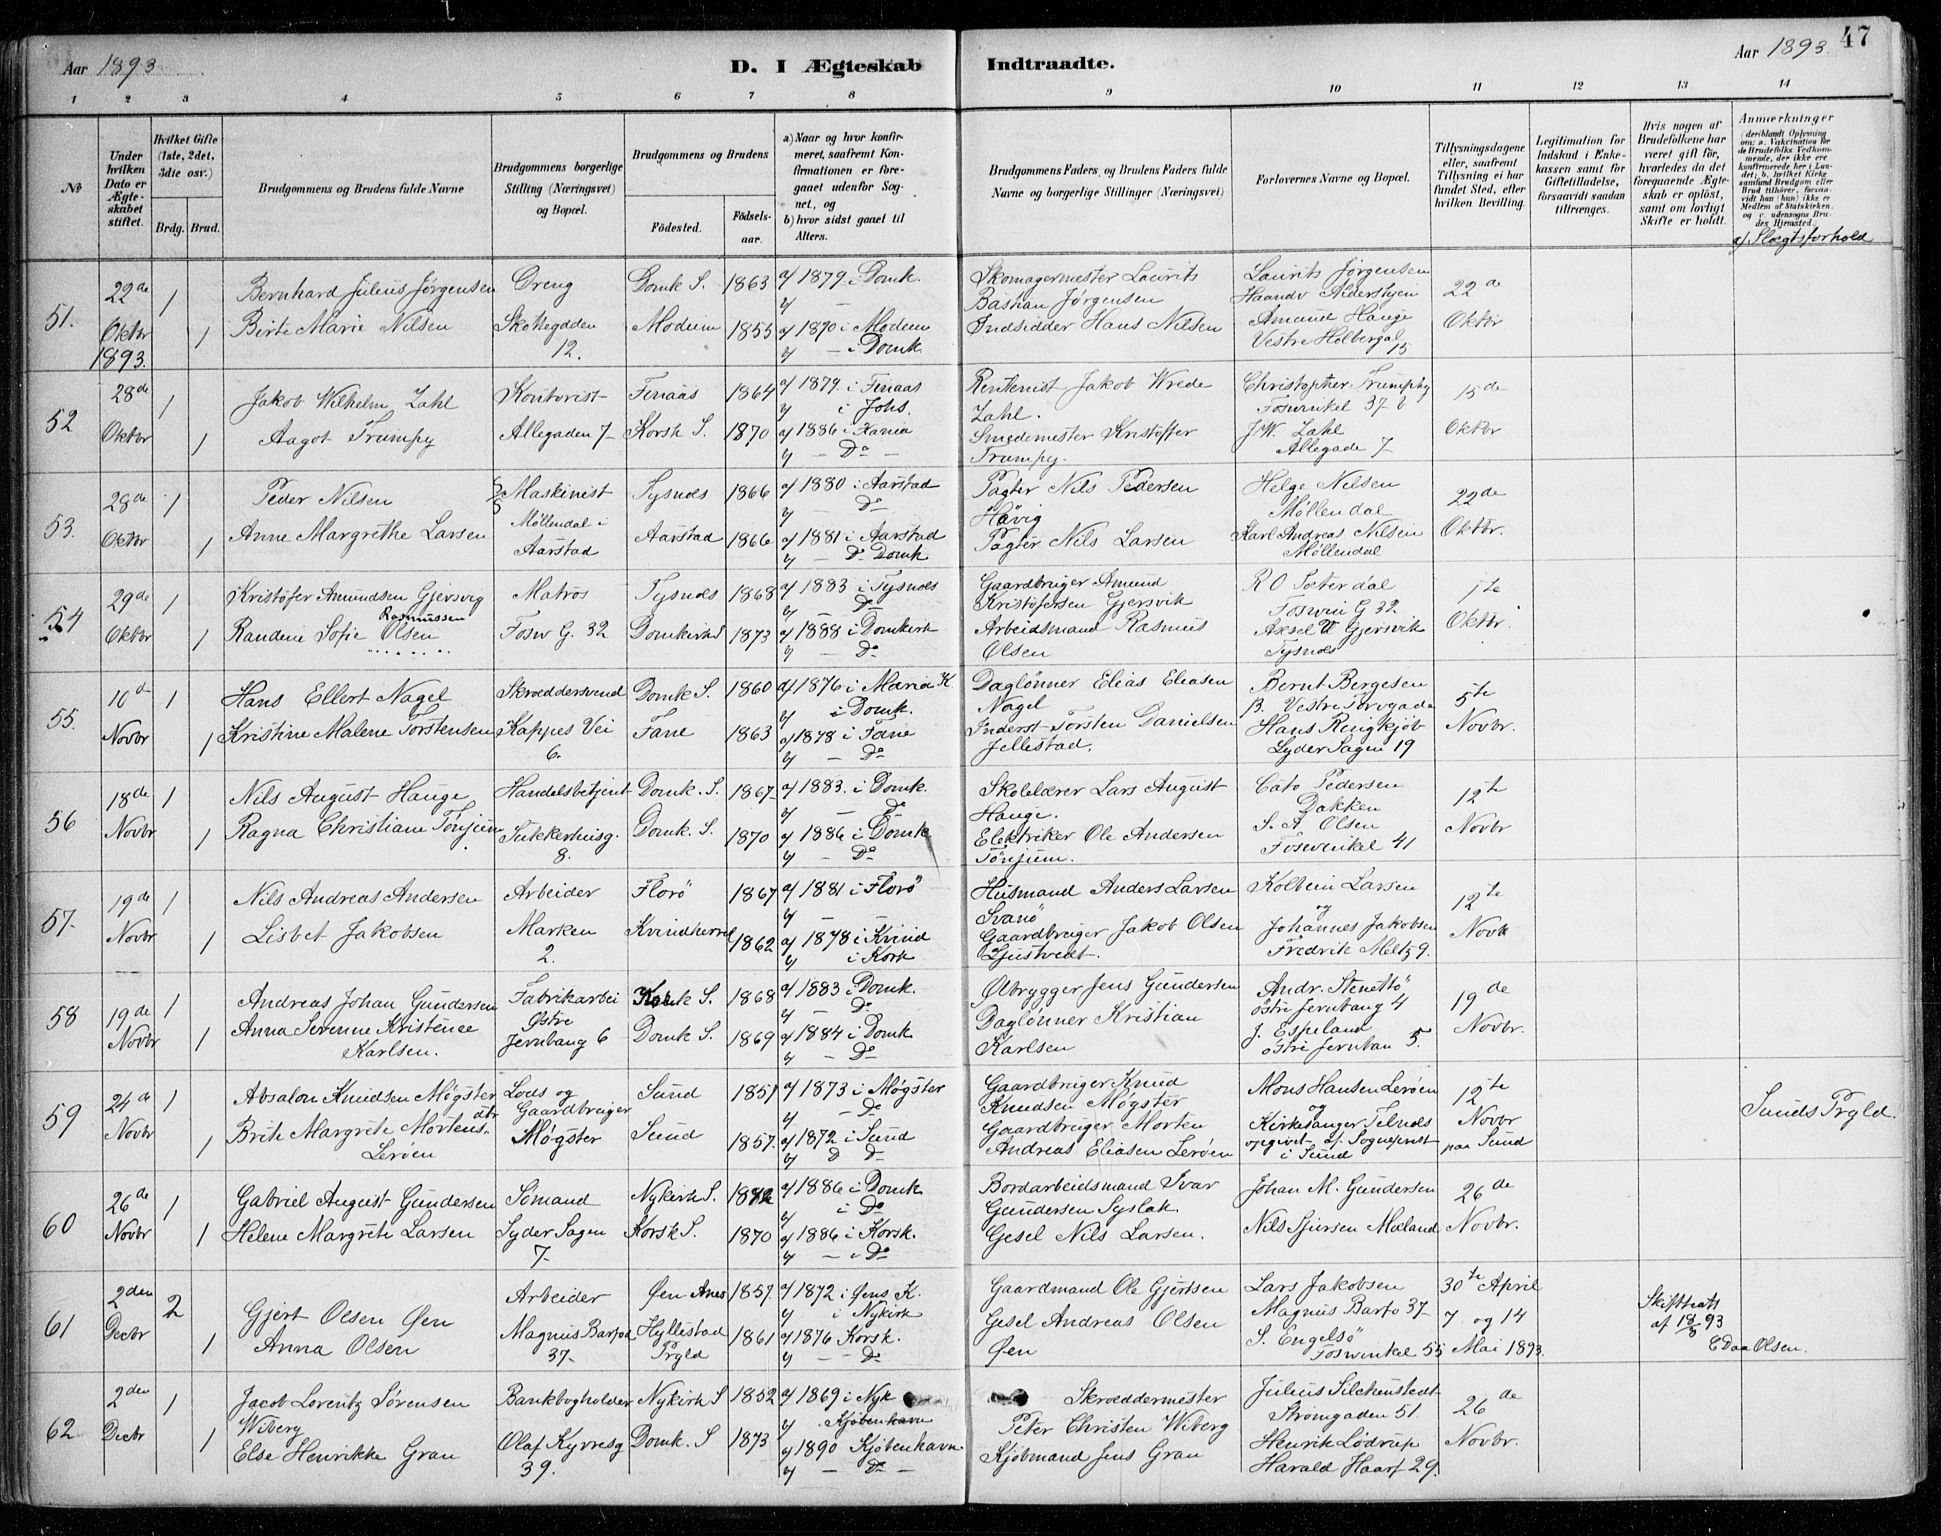 47
Aar 1893. D. I Ægteskab Indtraadte. Aar 1893.
1 2 3 4 5 6 7 8 9 10 11 12 13 14
No
Under hvilken Dato er Ægteskabet stiftet.
Hvilket Gifte (1ste, 2det, 3die osv.)
Brdg. Brud.
Brudgommens og Brudens fulde Navne
Brudgommens borgerlige Stilling (Næringsvei) og Bopæl.
Brudgommens og Brudens
Fødested. Fødselsaar.
a) Naar og hvor konfirmeret, saafremt Konfirmationen er foregaaet udenfor Sognet, og
b) hvor sidst gaaet til Alters.
Brudgommens Faders, og Brudens Faders fulde Navne og borgerlige Stillinger (Næringsvei)
Forlovernes Navne og Bopæl.
Tillysningsdagene eller, saafremt Tillysning ei har fundet Sted, efter hvilken Bevilling.
Legitimation for Indskud i Enkekassen samt for Giftetilladelse, forsaavidt saadan tiltrænges.
Hvis nogen af Brudefolkene har været gift før, hvorledes da det foregaaende Ægteskab er opløst, samt om lovligt Skifte er holdt.
Anmerkninger (deriblandt Oplysning om: a. Vakcination for de Brudefolks Vedkommende, der ikke ere konfirmerede her i Landet; b. hvilket Kirkesamfund Brudgom eller Brud tilhører, forsaavidt han (hun) ikke er Medlem af Statskirken, og c. udensogns Brudes Hjemsted.
d) Slægtsforhold
51. 22de Oktbr 1893. 1 1
Bernhard Julius Jørgensen Dreng Domk S. 1863 a) 1879 i Domk. b) —
Birte Marie Nilsen Skottegadden 12. Modum 1855 a) 1870 i Modum b) — i Domk.
Skomagermester Laurits Bastian Jørgensen
Indsidder Hans Nilsen
Laurits Jørgensen Haandv Aldershjem
Amund Hauge Vestre Holbergal 15
22de Oktbr
52 28de Oktbr 1 1
Jakob Wilhelm Zahl Kontorist Finaas 1864 a) 1879 i Finaas b) i Johs.
Aagot Trumpy Allegaden 7 Korsk S. 1870 a) 1886 i Xania b) — Do —
Rentenist Jakob Wrede Zahl.
Smedemester Kristoffer Trumpy.
Christopher Trumphy Foswinkel 37 b
J.W. Zahl Allegade 7
15de Oktbr
53. 28de Oktbr 1 1
Peder Nilsen Maskinist Tysnes 1866 a) 1880 i Aarstad b) — Do
Anne Margrethe Larsen Møllendal i Aarstad Aarstad 1866 a) 1881 i Aarstad b) — Do Domk
Pagter Nils Pedersen Håvig
Pagter Nils Larsen
Helge Nilsen Møllendal
Karl Andreas Nilsen Møllendal
22de Oktbr.
54 29de Oktbr 1 1
Kristofer Amundsen Gjersvig Matros Tysnes 1868 a) 1883 i Tysnes b) — Do
Randine Sofie Rasmussen Olsen Fosw G. 32 Domkirkes 1873 a) 1888 i Domkirk b) — Do
Gaardbruger Amund Kristofersen Gjersvik
Arbeidsmand Rasmus Olsen
R O Sæterdal Foswin G 32
Aksel W Gjersvik Tysnes
1te Oktbr.
55. 10d Novbr 1 1
Hans Ellert Nagel Skræddersvend Domk S. 1860 a) 1876 i Maria K b) i Domk.
Kristine Malene Torstensen Kappes Vei 6. Fane 1863 a) 1878 i Fane b) — Do
Dagløнner Elias Eliasen Nagel
Inderst Torsten Danielsen Jellestad.
Bernt Bergesen 13. Vestre Torvgade
Hans Ringkjøb Lyder Sagen 19
5te Novbr.
56 18de Novbr 1 1
Nils August Hauge Handelsbetjent Domk. S. 1867 a) 1883. i Domk. b) — Do
Ragna Christiane Tönjum Sukkerhusg. 8. Domk. S. 1870 a) 1886 i Domk b) — Do
Skolelærer Lars August Hauge.
Elektriker Ole Andersen Tönjum.
Cato Pedersen Dakken
S. A Olsen Foswinkel 41
12te Novbr
57. 19de Novbr 1 1
Nils Andreas Andersen Arbeider Florö 1867 a) 1881 i Florö b) —
Lisbet Jakobsen Marken 2. Kvindherred 1862 a) 1878 i Kvind b) i Kork
Husmand Anders Larsen Svanö
Gaardbruger Jakob Olsen Ljustvedt.
Kolbein Larsen og
Johannes Jakobsen Fredrik Meltz 9.
12te Novb
58 19de Novbr 1 1
Andreas Johan Gundersen Fabrikarbei Østre Jernbang 6 Korsk S. 1868 a) 1883 i Domk. b) — Do
Anna Serenne Kristence Karlsen. Domk S. 1869 a) 1884 i Domk b) — Do
Ølbrygger Jens Gundersen
Dagløнner Kristian Karlsen
Andr. Stenettö östre Jernbang 4
J. Espeland östre Jernban 5.
19de Novbr.
59 24de Novbr 1 1
Absalon Knudsen Møgster Lods og Gaardbruger Sund 1851 a) 1873 i Møgster b) — Do
Brite Margrete Mortensdtr Lerøen Møgster Sund 1857. a) 1872 i Sund b) D Do
Gaardbruger Knud Knudsen Møgster
Gaardbruger Morten Andreas Eliasen Lerøen
Mons Hansen Lerøen og
Kirkesanger Telnes opgivet af Sogneprest i Sund
12te Novbr paa Sund
Sunds Prgld.
60 26de Novbr 1 1
Gabriel August Gundersen Sømand Nykirk S. 1872 a) 1886 i Domk b) i Do
Helene Margrete Larsen Lyder Sagen 7 Korsk S. 1870 a) 1886 i Korsk. b) — i Do
Bordarbeidsmand Ivar Gundersen Syslak.
Gesel Nils Larsen.
Johan M. Gundersen
Nils Sjursen Mæland
26de Novbr.
61 2den Decbr 2 1
Gjert Olsen Øen Arbeider Øen Anes 1857 a) 1872 i Øens K. b) i Nykirk
Anna Olsen Magnus Barfod 37 Hyllestad Prgld 1861 a) 1876 Korsk. b) — Do
Gaardmand Ole Gjertsen
Gesel Andreas Olsen Øen
Lars Jakobsen Magnus Barfo 37
S. Engelsö Foswinkel 55
30te April 7 og 14 Mai 1893.
Skifteatt af 18/8 93 E Daa Olsen.
62 2den Decbr 1 1
Jacob Lorentz Sørensen Wiberg Bankbogholder Nykirk S 1852 a) 1869 i Nyk b) Kjøbenhavn
Else Henrikke Gran Olaf Kyrresg 39. Domk. S 1873 a) 1890 Kjøbenhavn b) — Do —
Skræddermester Peter Christen Wiberg
Kjøbmand Jens Gran
Julius Silchenstedt Strømgaden 51.
Henrik Lødrup Harald Haarf 29.
26de Novbr.